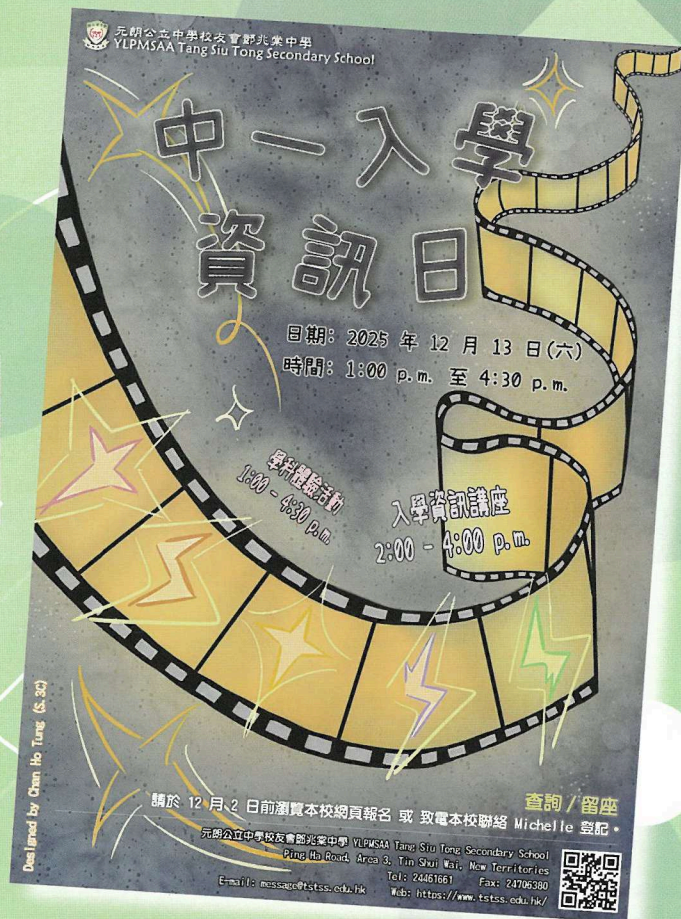 元朗公立中學校友會鄧兆棠中學
YLPMSAA Tang Siu Tong Secondary School
中一入學
資訊日
日期: 2025 年 12 月 13 日(六)
時間: 1:00 p.m. 至 4:30 p.m.
學科體驗活動
1:00 - 4:30 p.m.
入學資訊講座
2:00 - 4:00 p.m.
Designed by Chan Ho Tung (S.3C)
查詢 / 留座
請於 12 月 2 日前瀏覽本校網頁報名 或 致電本校聯絡 Michelle 登記。
元朗公立中學校友會鄧兆棠中學 YLPMSAA Tang Siu Tong Secondary School
Ping Ha Road, Area 3, Tin Shui Wai, New Territories
Tel: 24461661 Fax: 24706380
E-mail: message@tstss.edu.hk Web: https://www.tstss.edu.hk/